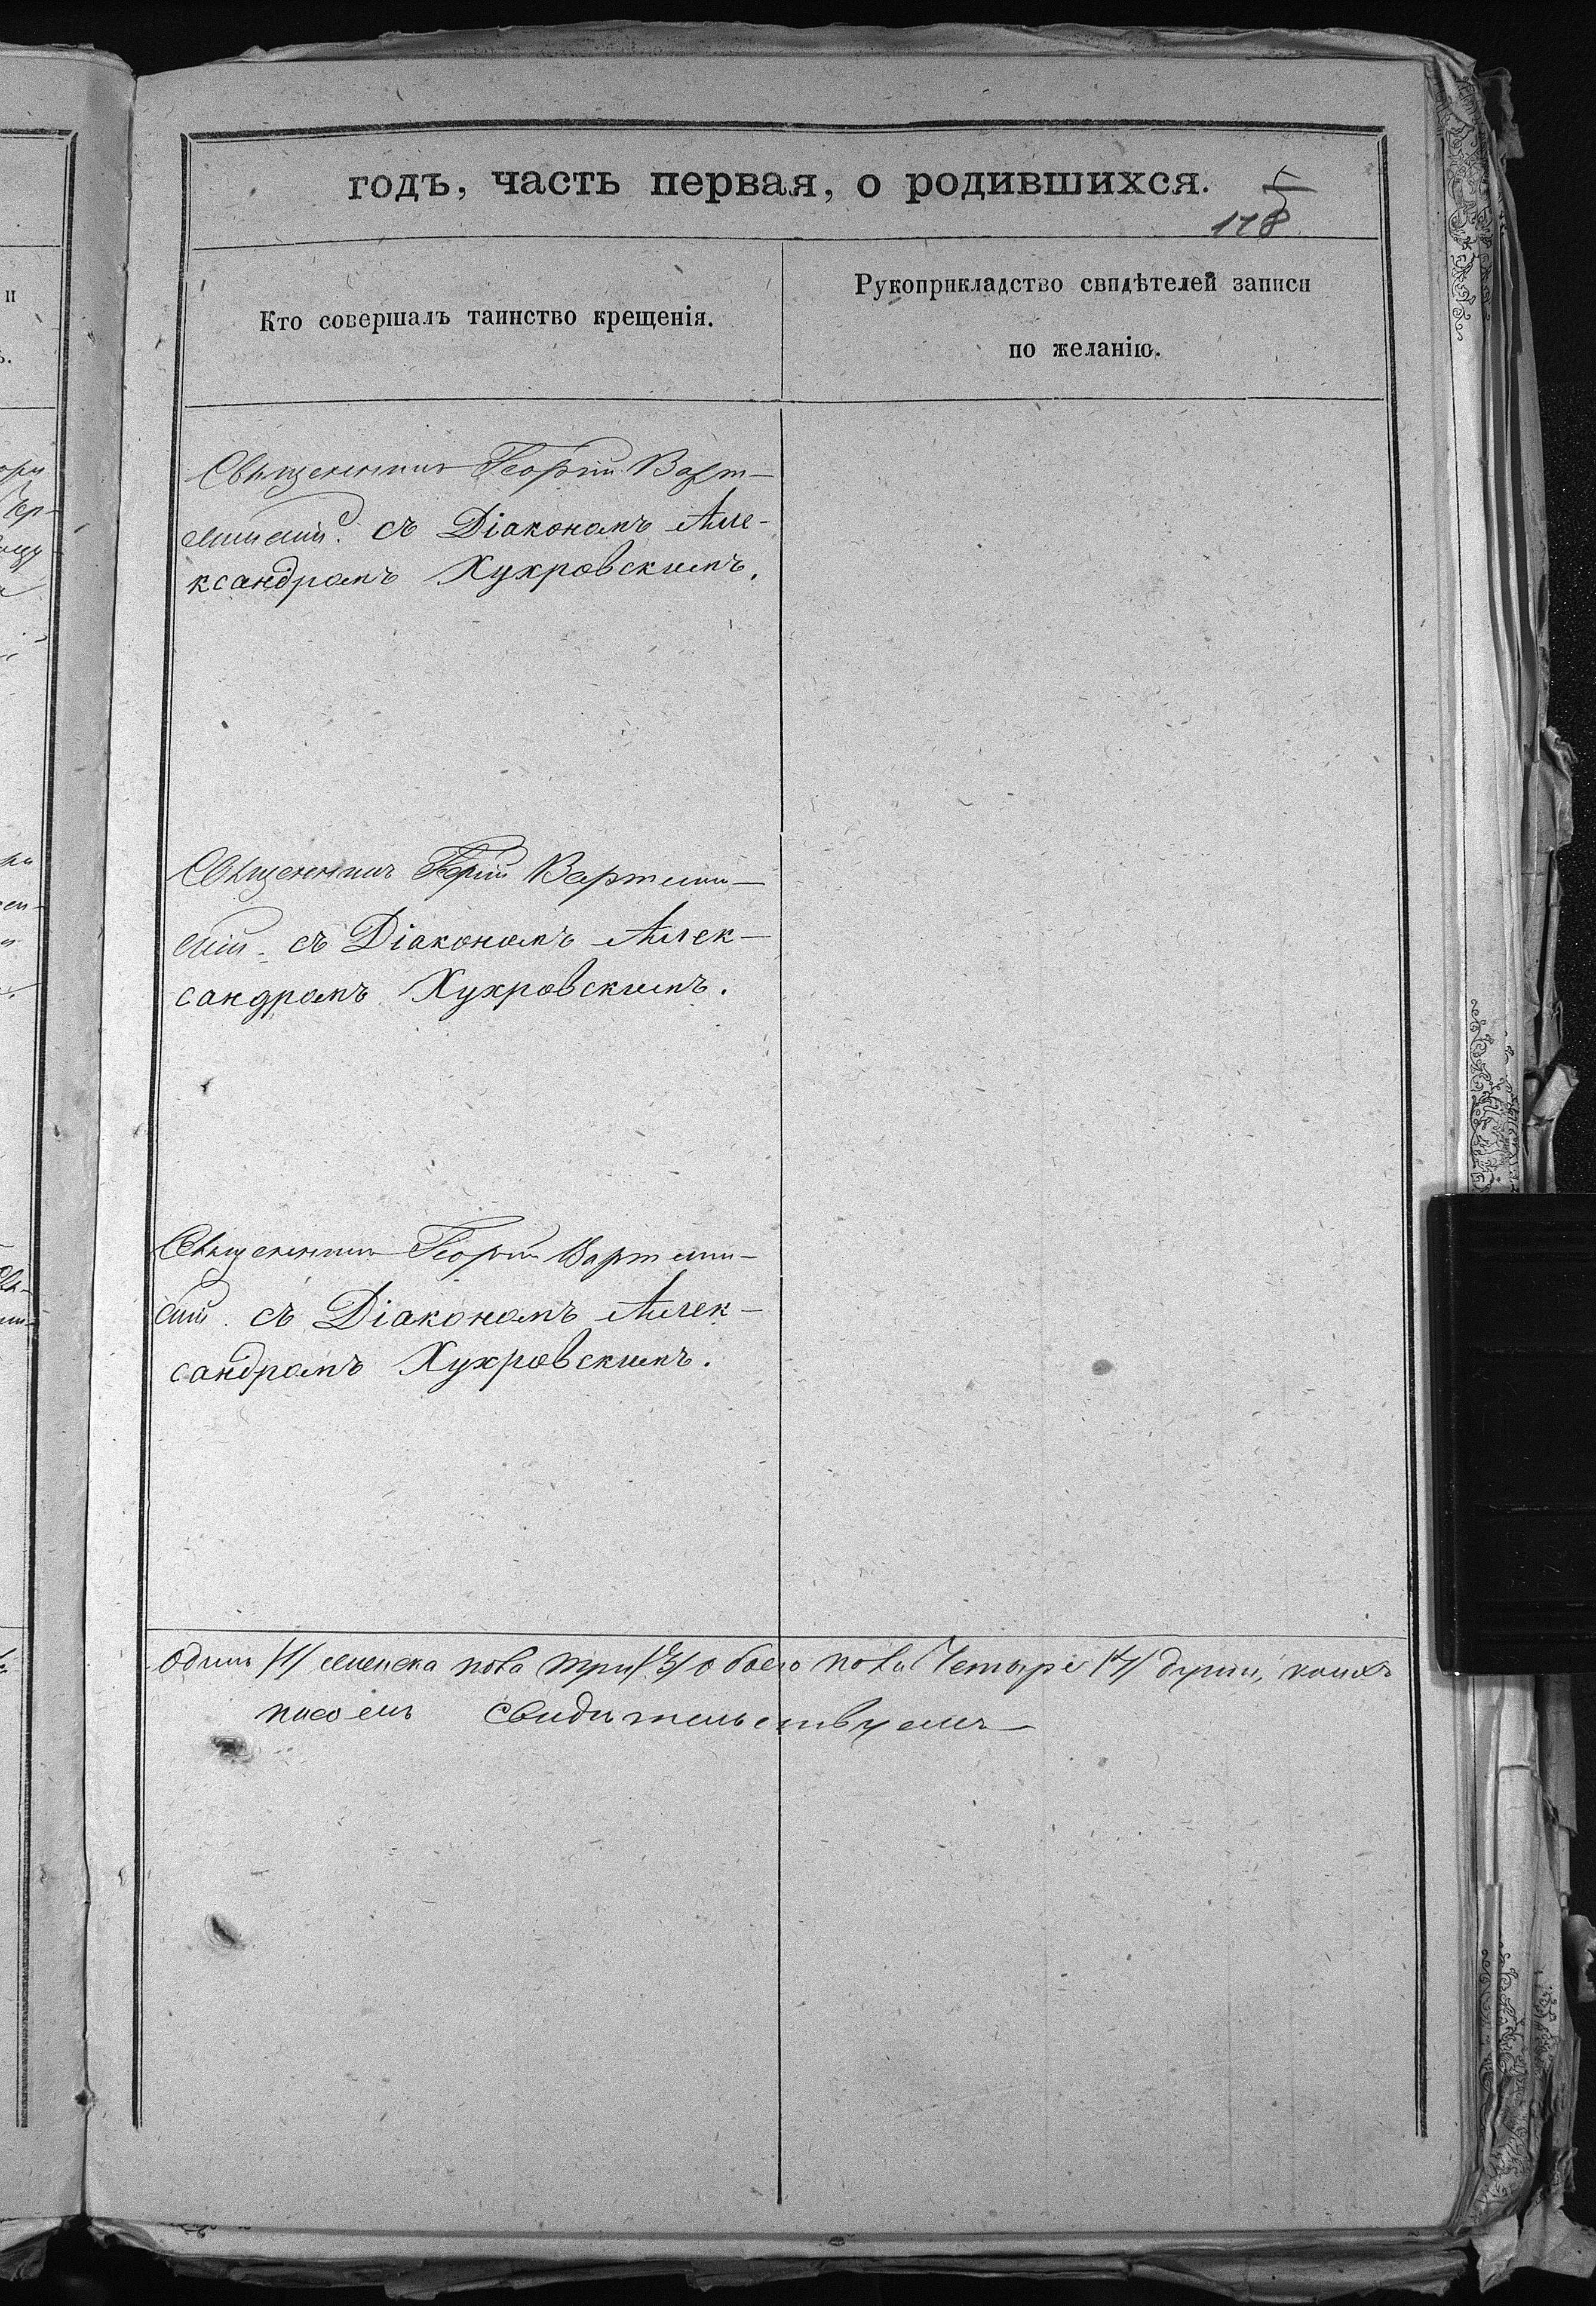 годъ, часть первая, о родившихся.
5
178
Кто совершалъ таинство крещенія.
Рукоприкладство свидѣтелей записи
по желанію.
Священникъ Георгій
съ Діакономъ Але-
ксандромъ Хухровскимъ.
Священникъ
съ Діакономъ Алек-
сандромъ Хухровскимъ.
Священникъ Георгій
съ Діакономъ Алек-
сандромъ Хухровскимъ.
Одинъ /1/ женска пола три /3/ обоего пола Четыре /4/ души,
свидѣтельствуемъ